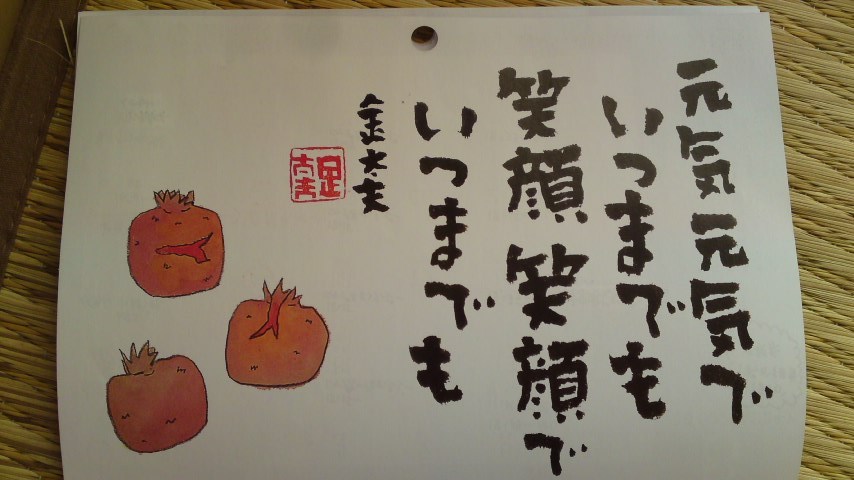 元気元気で
いつまでも
笑顔笑顔で
いつまでも
金太夫